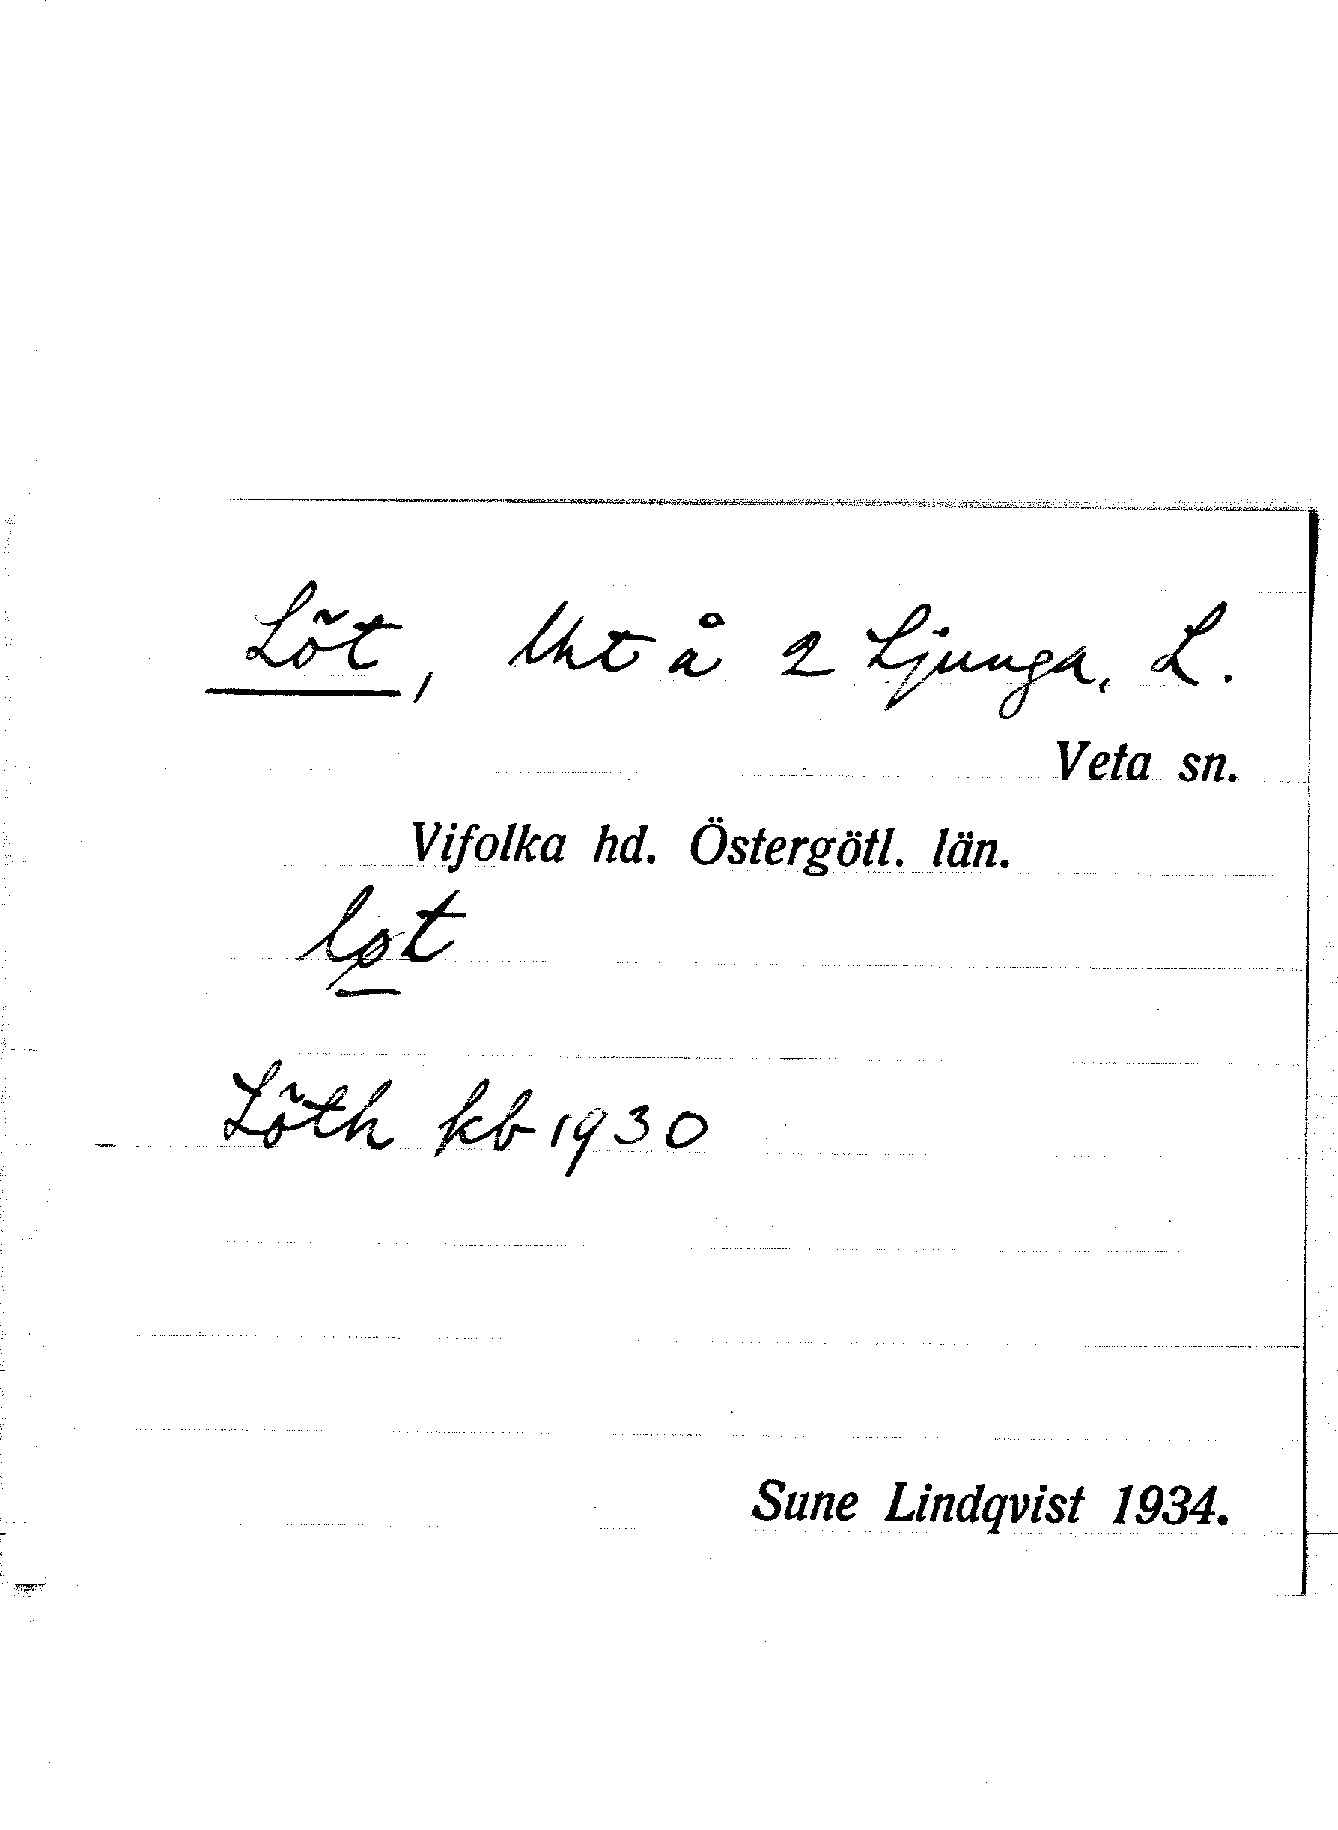 Löt, lht å 2 Ljunga, L.
Veta sn.
Vifolka hd. Östergötl. län.
lø̲t
Löth kb 1930
Sune Lindqvist 1934.